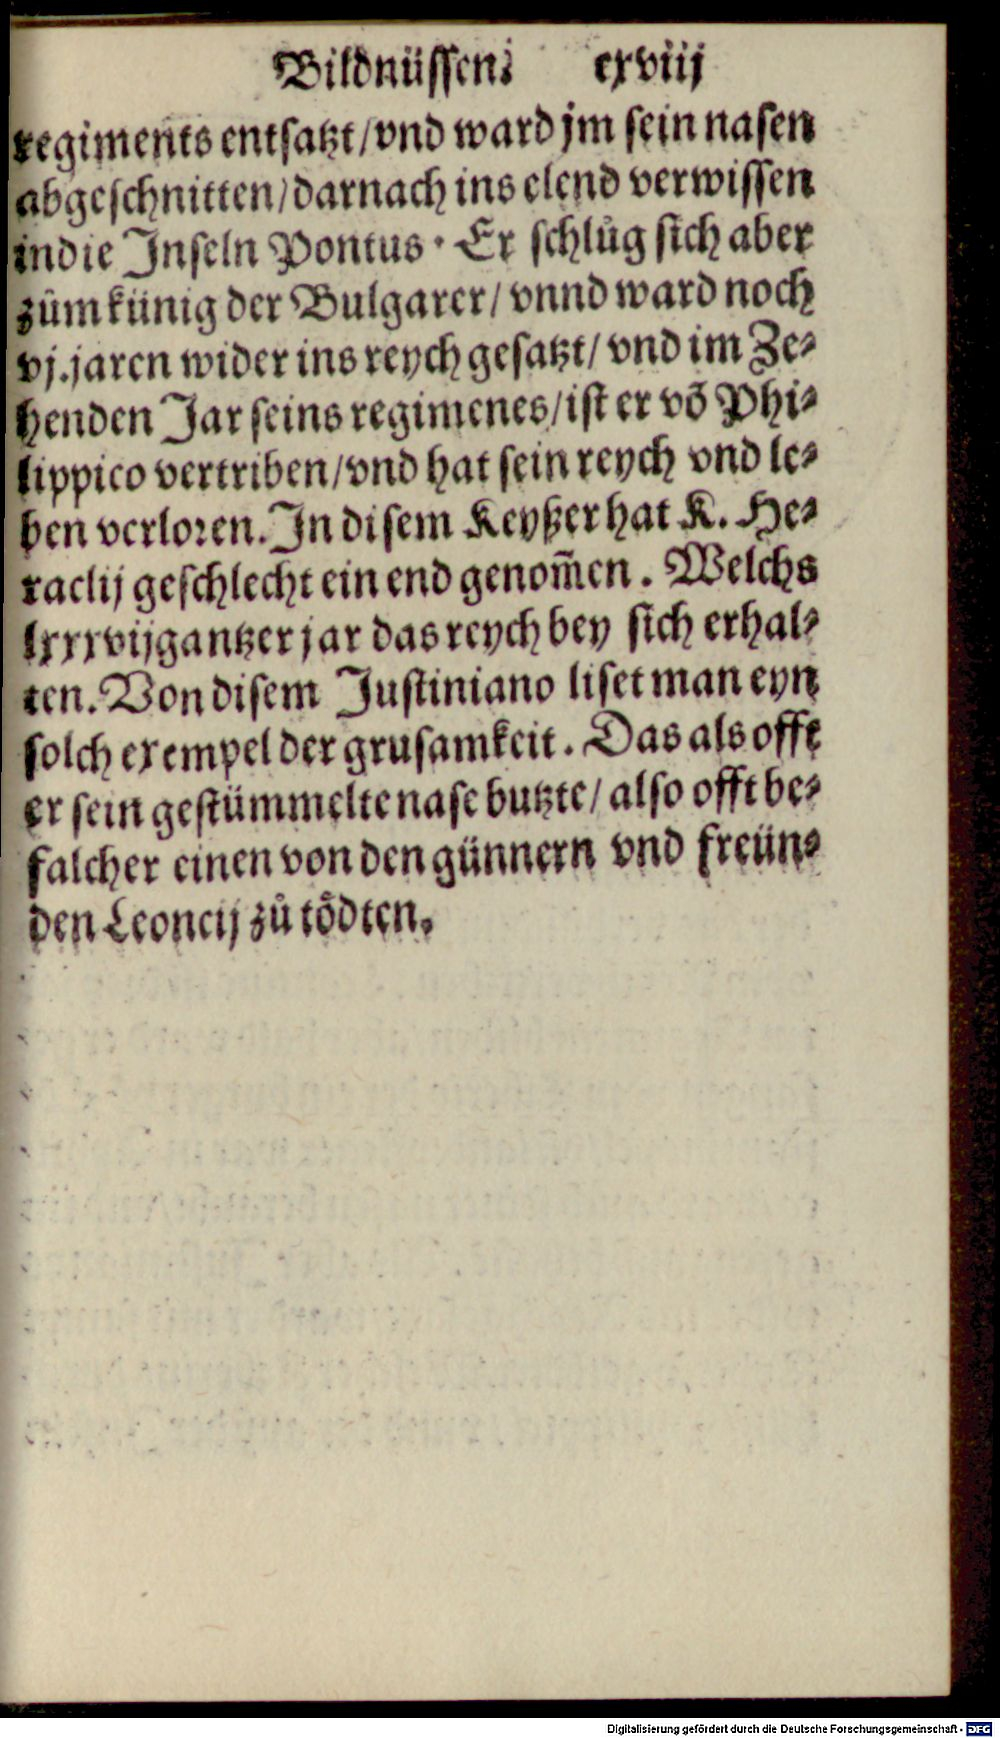 Bildnüssen. cxviij
regiments entsatzt/vnd ward jm sein nasen
abgeschnitten/darnach ins elend verwissen
in die Inseln Pontus. Er schlůg sich aber
zům künig der Bulgarer/ vnnd ward noch
vj.jaren wider ins reych gesatzt/ vnd im Ze⸗
henden Jar seins regimenes/ist er võ Phi⸗
lippico vertriben/vnd hat sein reych vnd le⸗
ben verloren. In disem Keyßer hat K. He⸗
raclij geschlecht ein end genom̃en. Welchs
lxxxvij gantzer jar das reych bey sich erhal⸗
ten. Von disem Justiniano liset man eyn
solch exempel der grusamkeit. Das als offt
er sein gestümmelte nase butzte/ also offt be⸗
falch er einen von den günnern vnd freün⸗
den Leoncij zů tödten.
Digitalisierung gefördert durch die Deutsche Forschungsgemeinschaft - DFG